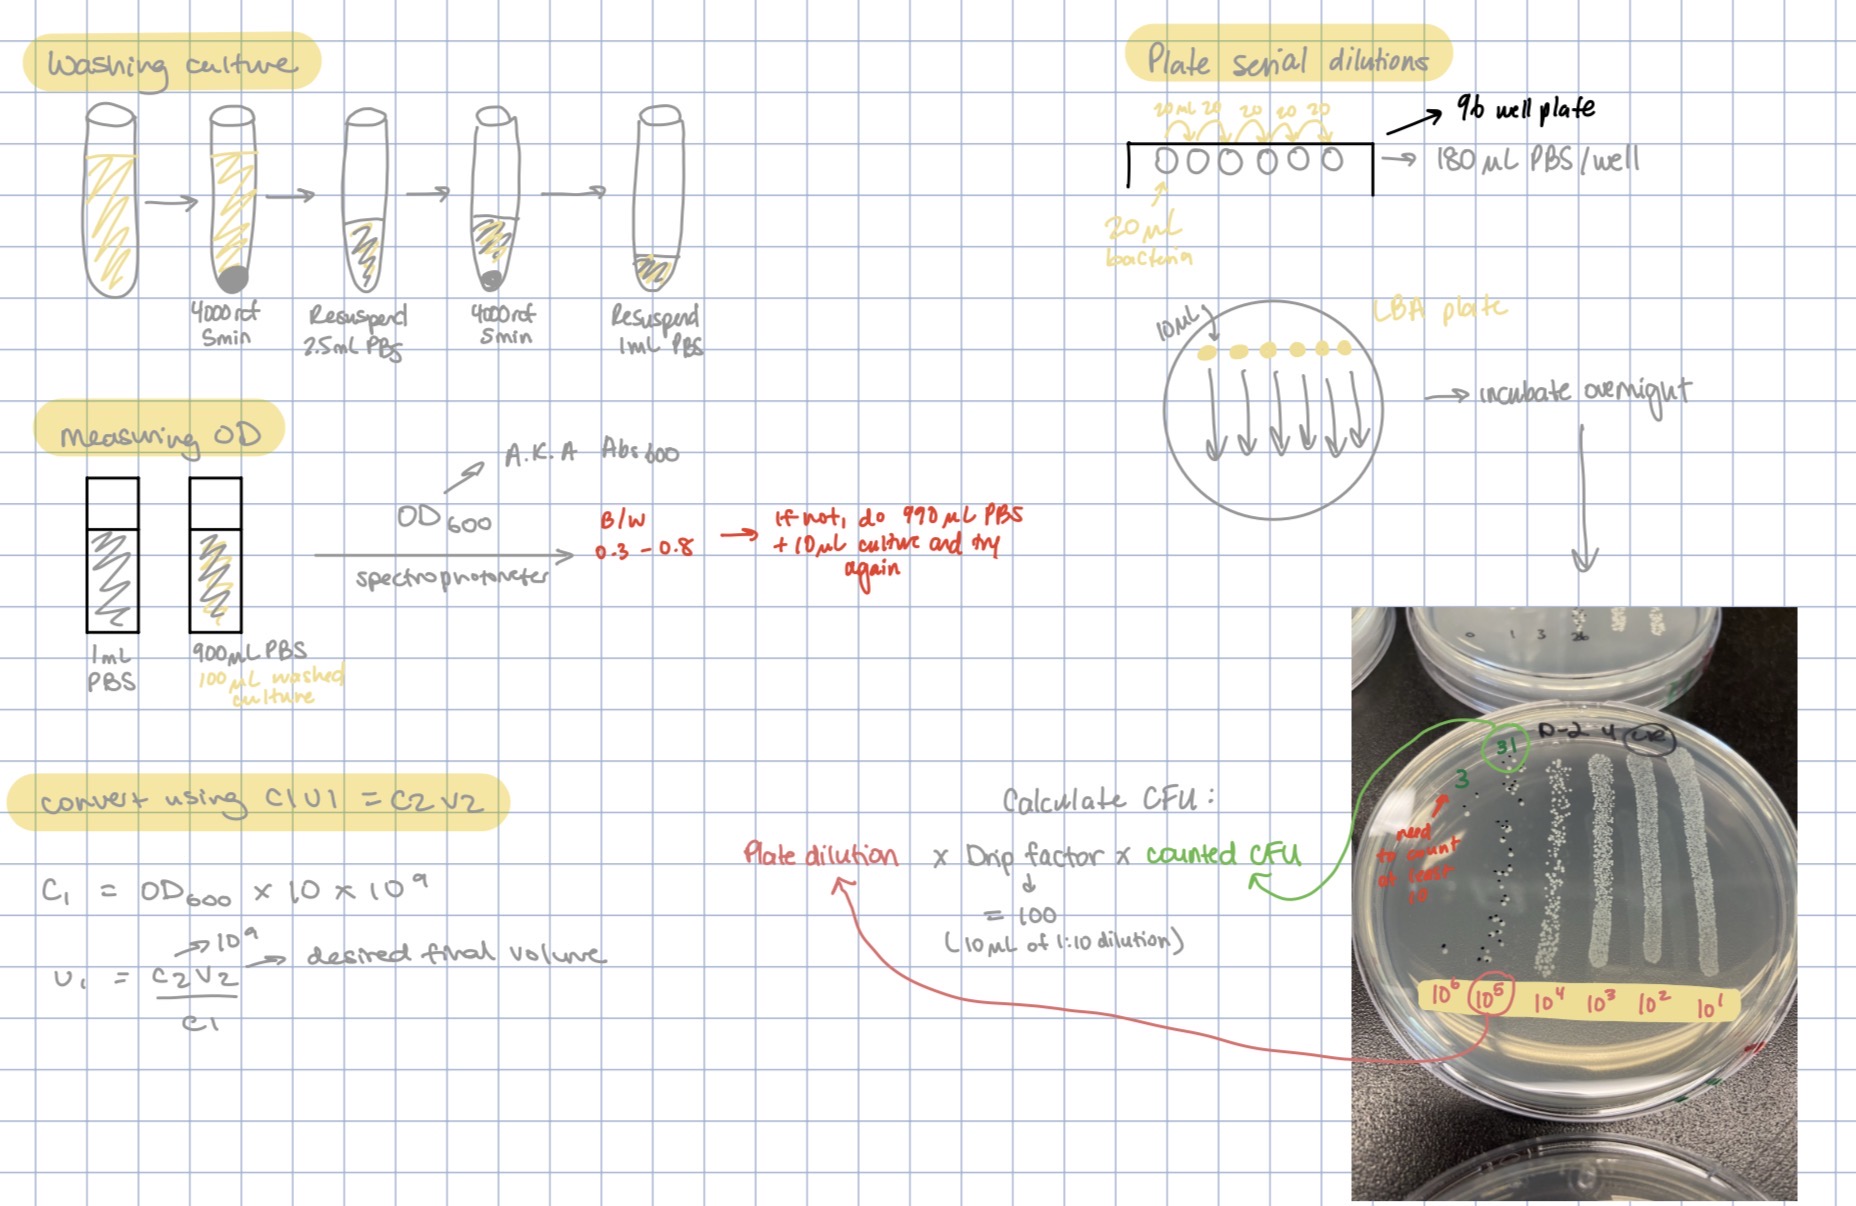 Washing culture
4000 rcf
5min
Resuspend
2.5mL PBS
4000 rcf
5min
Resuspend
1mL PBS
measuring OD
1mL
PBS
900µL PBS
100µL washed
culture
OD600
A.K.A Abs600
spectrophotometer
B/W
0.3 - 0.8
If not, do 990µL PBS
+ 10µL culture and try
again
convert using C1V1 = C2V2
C1 = OD600 x 10 x 10^9
V1 = C2V2
C1
10^9
desired final volume
Plate serial dilutions
20 mL 20 20 20 20
96 well plate
180 µL PBS/well
20µL
bacteria
10µL
LBA plate
incubate overnight
Calculate CFU:
Plate dilution x Drip factor x counted CFU
= 100
(10µL of 1:10 dilution)
0 1 3 26
D-2 4
31
3
need
to count
at least
10
10^6 10^5 10^4 10^3 10^2 10^1